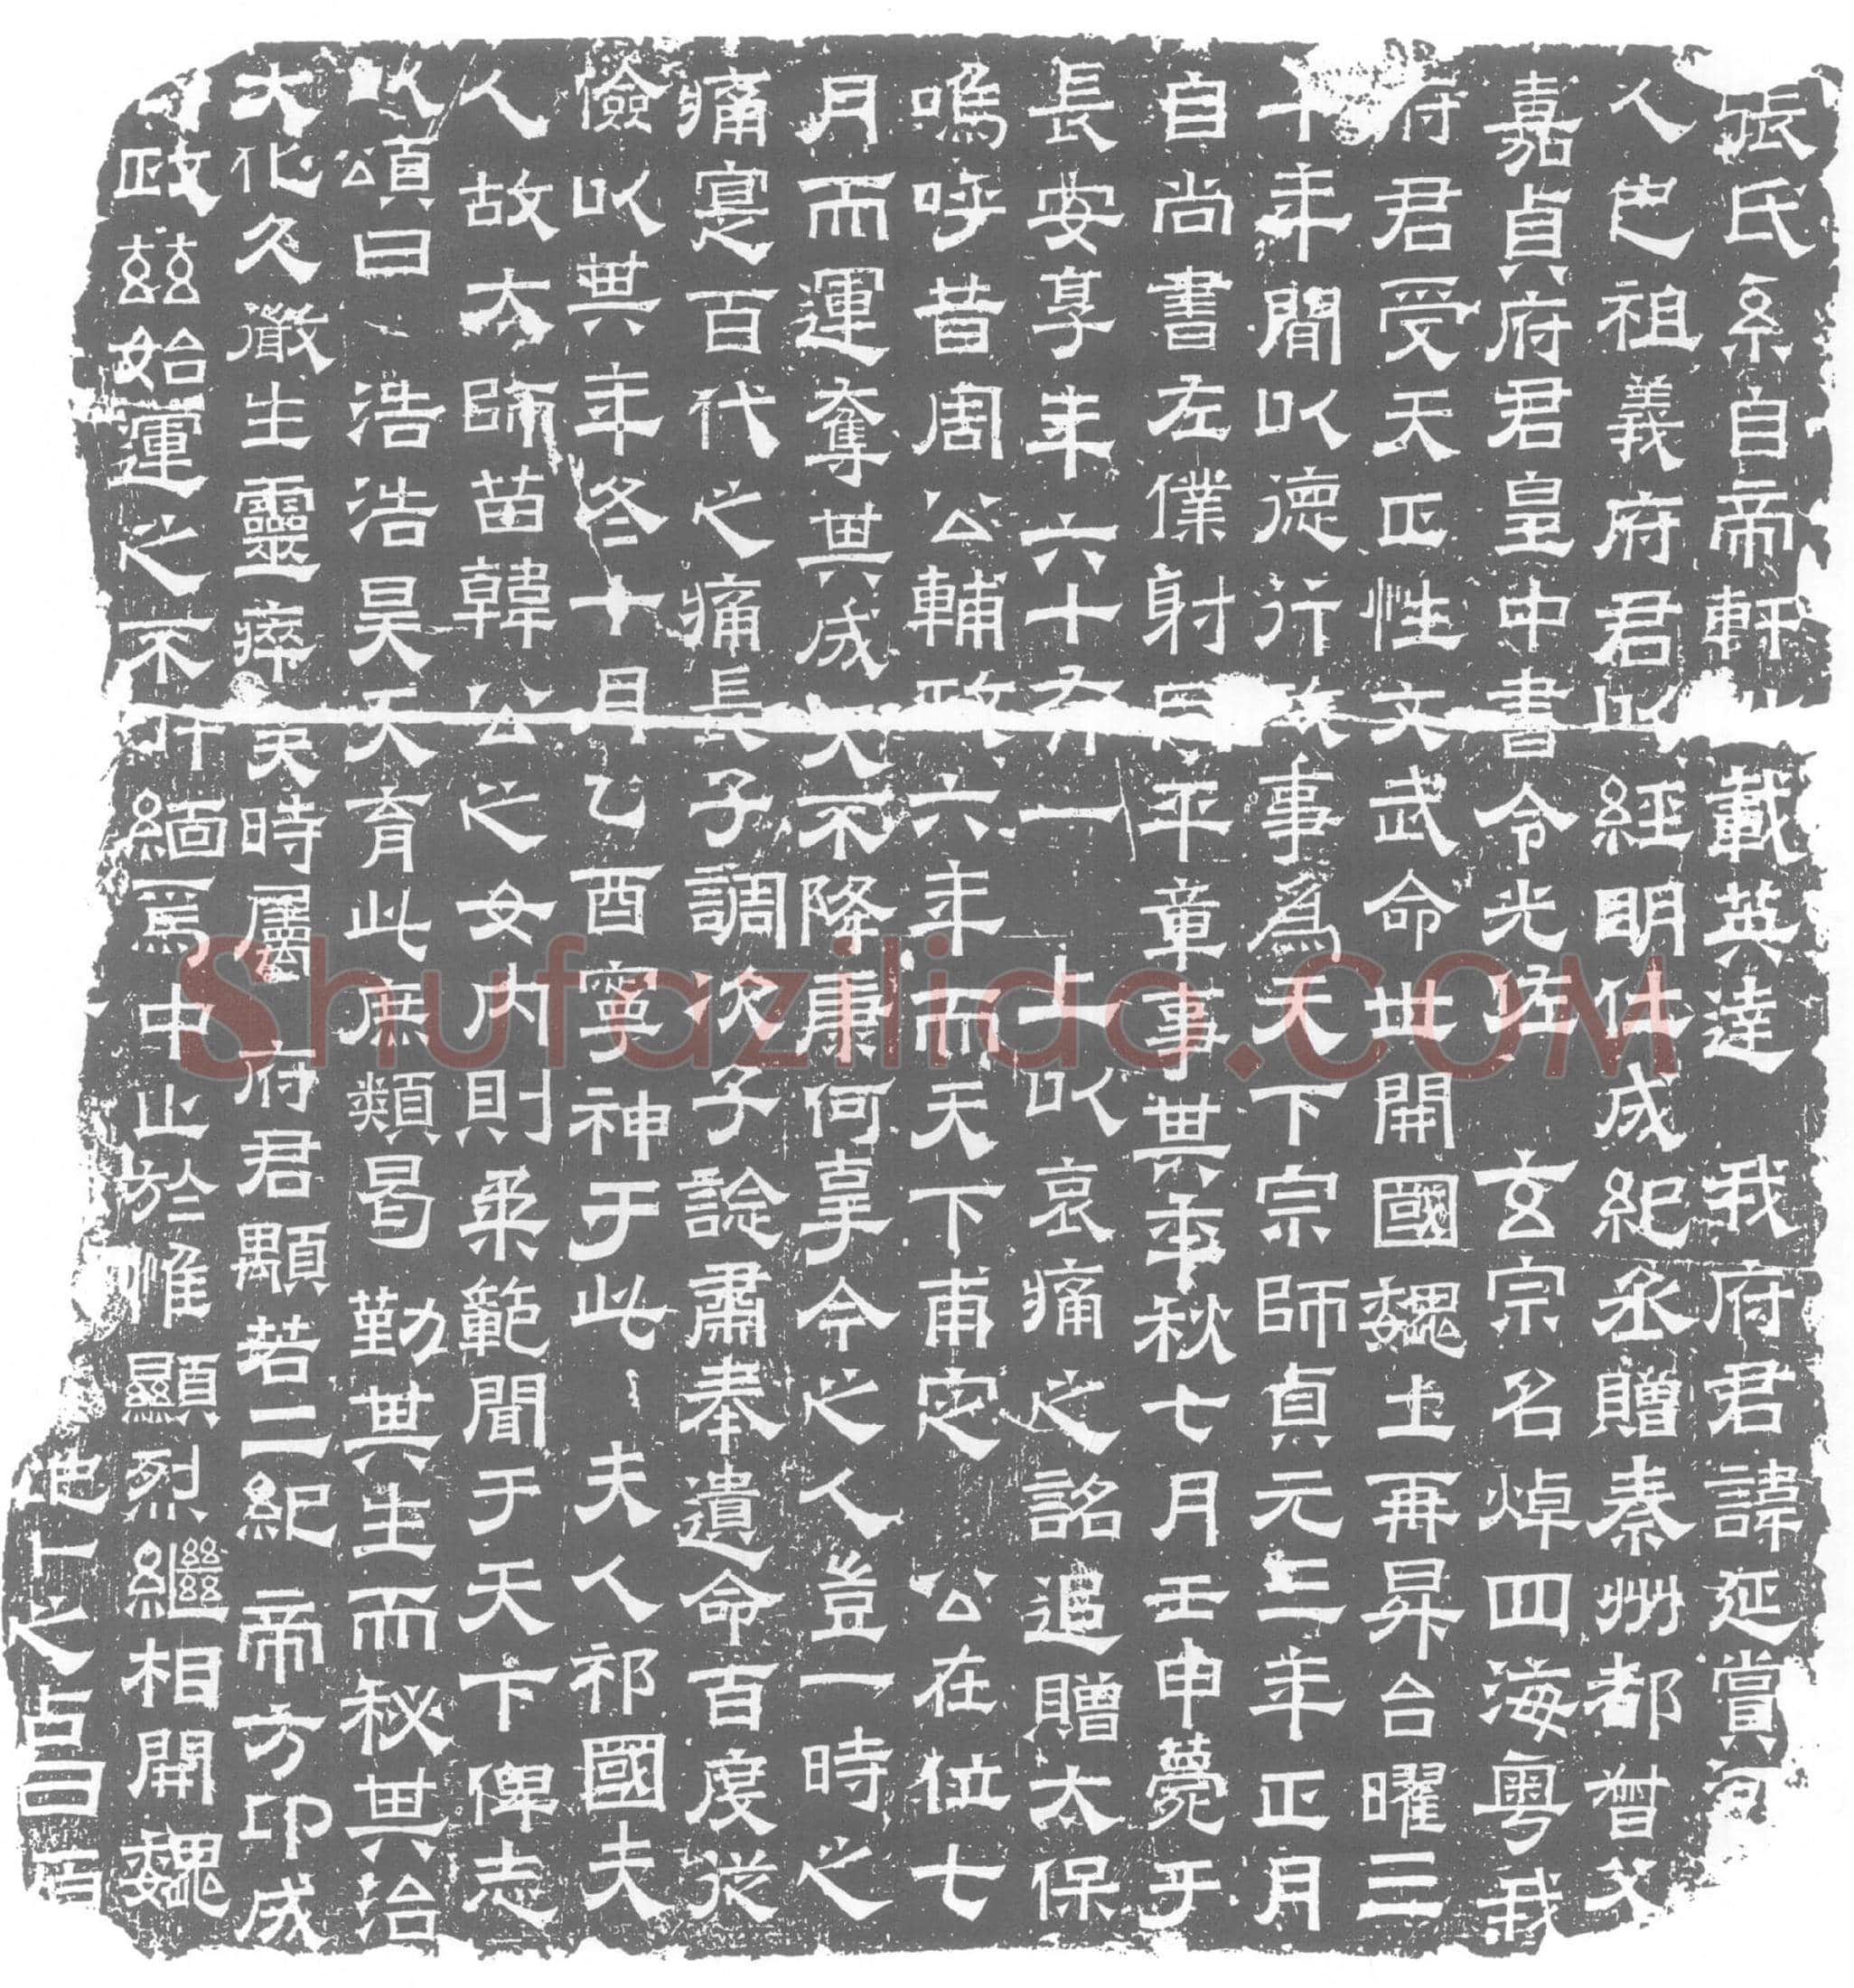 張氏系自帝軒 載英達 我府君諱延賞河
人也祖義府君以經明仕成紀丞贈秦州都督父
嘉貞府君皇中書令光佐 玄宗名焯四海粵我
府君受天正性文武命世開國魏土再昇台曜三
十年間以德行政事爲天下宗師貞元三年正月
自尚書左僕射同平章事其年秋七月壬申薨于
長安享年六十有一 上以哀痛之詔追贈太保
嗚呼昔周公輔政六年而天下甫定 公在位七
月而運奪其成大不降康何辜今之人豈一時之
痛寔百代之痛長子調次子諗肅奉遺命百度從
儉以其年冬十月乙酉寧神于此 夫人祁國夫
人故太師苗韓公之女內則柔範聞于天下俾志
以頌曰 浩浩昊天育此庶類曷勤其生而秘其治
大化久澂生靈瘁矣時屬 府君顒若二紀帝方印成
政玆始運之不 緬焉中止於惟顯烈繼相開魏